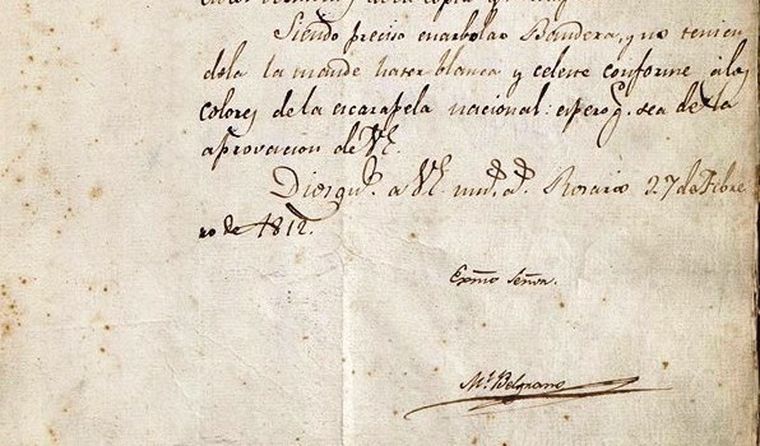 de la copia q.
Siendo preciso enarbolar Bandera, y no tenien
dola la mande hacer blanca y celeste conforme á los
colores de la escarapela nacional: espero q. sea de la
aprovacion de VE.
Dios gu.e a VE m.s a.s Rosario 27 de Febre
ro de 1812.
Exmo Señor.
M.l Belgrano